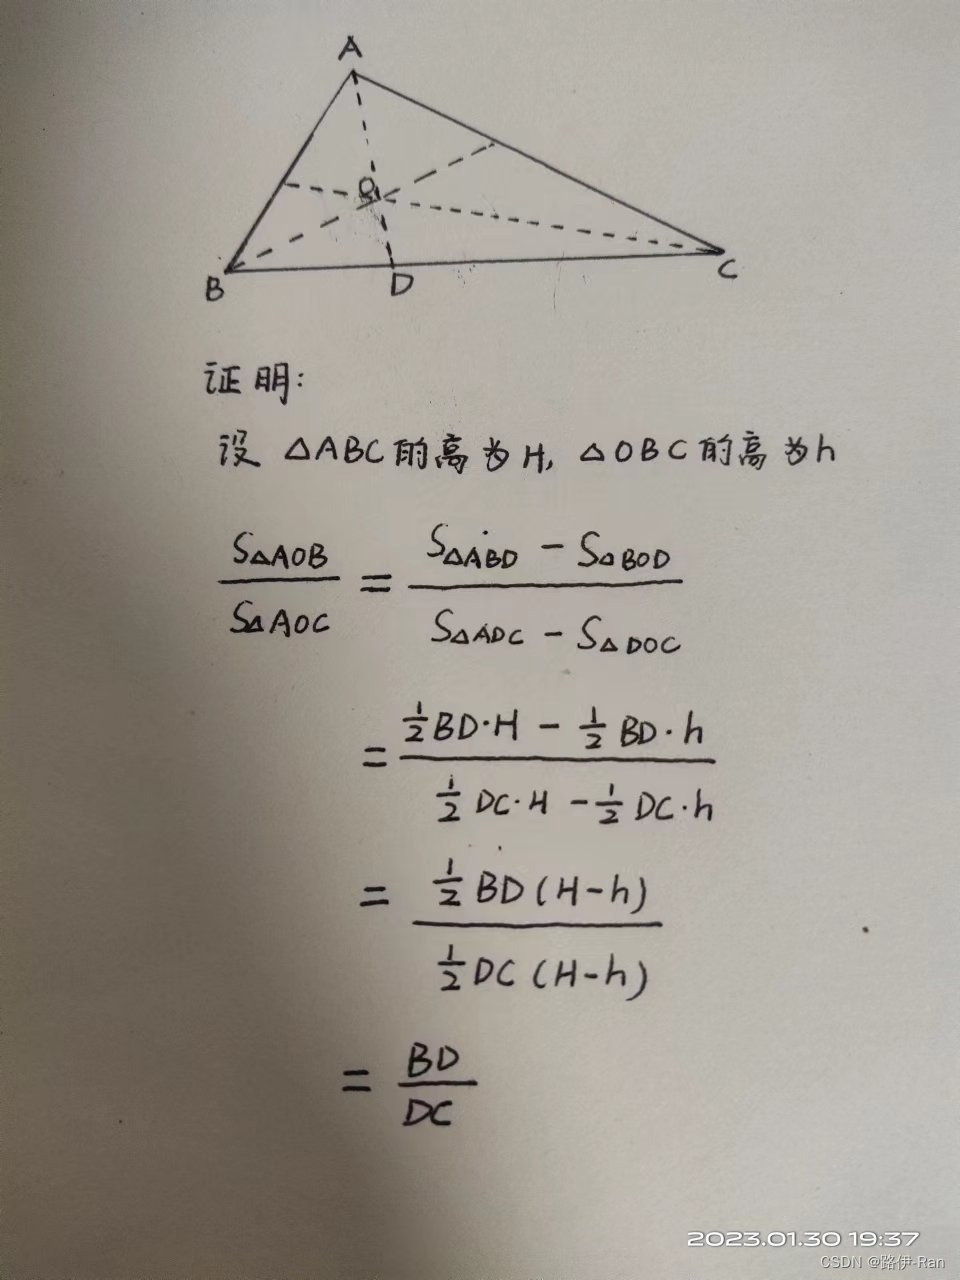 A
O
B
D
C
证明:
设 △ABC的高为H, △OBC的高为h
S△AOB / S△AOC = (S△ABD - S△BOD) / (S△ADC - S△DOC)
= (1/2 BD·H - 1/2 BD·h) / (1/2 DC·H - 1/2 DC·h)
= 1/2 BD(H-h) / 1/2 DC(H-h)
= BD / DC
2023.01.30 19:37
CSDN @路伊-Ran